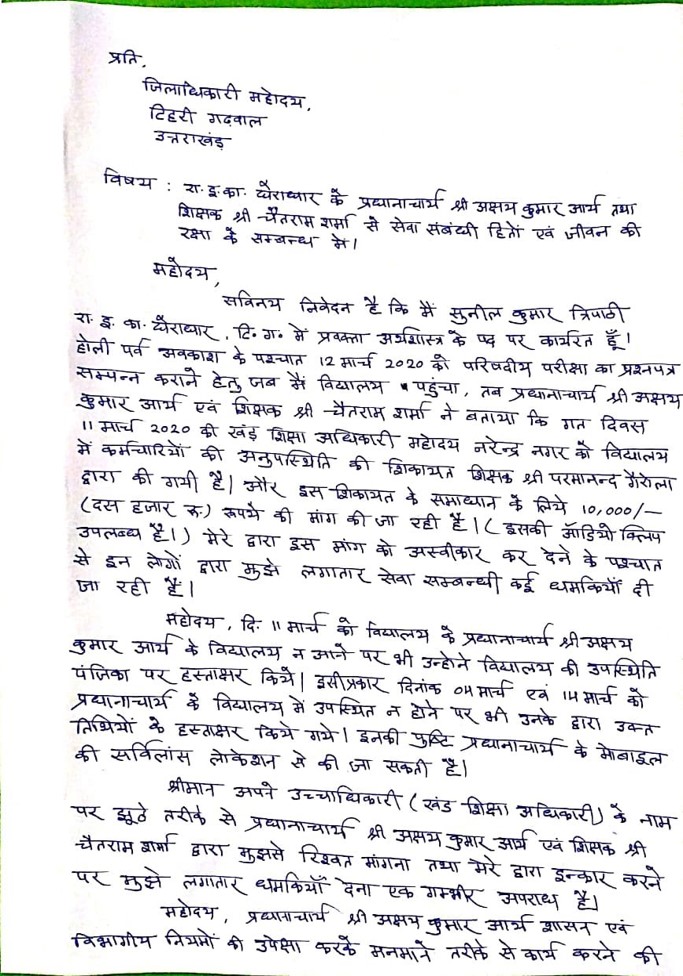 प्रति,
जिलाधिकारी महोदय,
टिहरी गढवाल
उत्तराखंड
विषय : रा.इ.का. घैराधार के प्रधानाचार्य श्री अक्षय कुमार आर्य तथा
शिक्षक श्री चैतराम शर्मा से सेवा संबंधी हितों एवं जीवन की
रक्षा के सम्बन्ध में।
महोदय,
सविनय निवेदन है कि मैं सुनील कुमार त्रिपाठी
रा. इ. का. घैराधार, टि. ग. में प्रवक्ता अर्थशास्त्र के पद पर कार्यरत हूँ।
होली पर्व अवकाश के पश्चात 12 मार्च 2020 को परिषदीय परीक्षा का प्रश्नपत्र
सम्पन्न कराने हेतु जब मैं विद्यालय पहुंचा, तब प्रधानाचार्य श्री अक्षय
कुमार आर्य एवं शिक्षक श्री चैतराम शर्मा ने बताया कि गत दिवस
11 मार्च 2020 को खंड शिक्षा अधिकारी महोदय नरेन्द्र नगर को विद्यालय
में कर्मचारियों की अनुपस्थिति की शिकायत शिक्षक श्री परमानन्द गैरोला
द्वारा की गयी है। और इस शिकायत के समाधान के लिये 10,000/-
(दस हजार रू.) रूपये की मांग की जा रही है। (इसकी ऑडियो क्लिप
उपलब्ध है।) मेरे द्वारा इस मांग को अस्वीकार कर देने के पश्चात
से इन लोगों द्वारा मुझे लगातार सेवा सम्बन्धी कई धमकियाँ दी
जा रही हैं।
महोदय, दि. 11 मार्च को विद्यालय के प्रधानाचार्य श्री अक्षय
कुमार आर्य के विद्यालय न आने पर भी उन्होने विद्यालय की उपस्थिति
पंजिका पर हस्ताक्षर किये। इसीप्रकार दिनांक 04 मार्च एवं 14 मार्च को
प्रधानाचार्य के विद्यालय में उपस्थित न होने पर भी उनके द्वारा उक्त
तिथियों के हस्ताक्षर किये गये। इनकी पुष्टि प्रधानाचार्य के मोबाइल
की सर्विलांस लोकेशन से की जा सकती है।
श्रीमान अपने उच्चाधिकारी (खंड शिक्षा अधिकारी) के नाम
पर झूठे तरीके से प्रधानाचार्य श्री अक्षय कुमार आर्य एवं शिक्षक श्री
चैतराम शर्मा द्वारा मुझसे रिश्वत मांगना तथा मेरे द्वारा इन्कार करने
पर मुझे लगातार धमकियाँ देना एक गम्भीर अपराध है।
महोदय, प्रधानाचार्य श्री अक्षय कुमार आर्य शासन एवं
विभागीय नियमों की उपेक्षा करके मनमाने तरीके से कार्य करने की